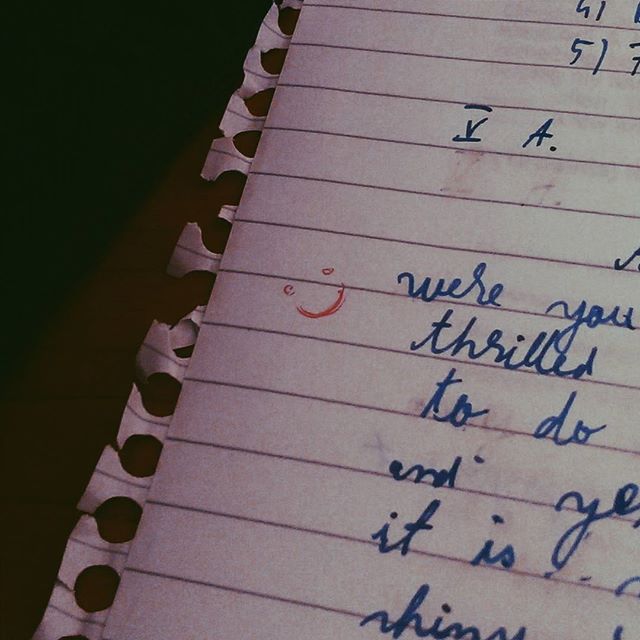 4)
5)
V A.
were you
thrilled
to do
and ye
it is
shiny